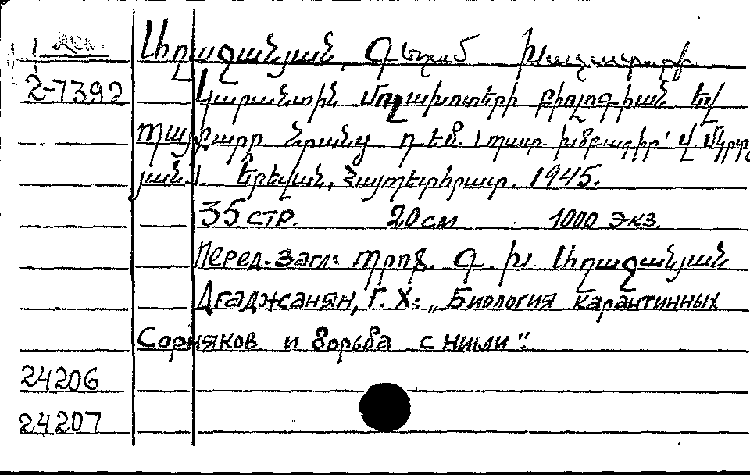 Աղաջանյան, Գեղամ Խաչատուրի
2-7392 Կարանտին մոլախոտերի բիոլոգիան եվ
պայքարը նրանց դեմ. (պատ. խմբագիր՝ Վ. Մկրտչ
յան.) Երեվան, Հայպետհրատ. 1945.
35 стр. 20 см 1000 экз.
Перед. загл: Պրոֆ. Գ. Խ. Աղաջանյան
Агаджанян, Г. Х: „Биология карантинных
Сорняков и борьба с ними".
24206
24207